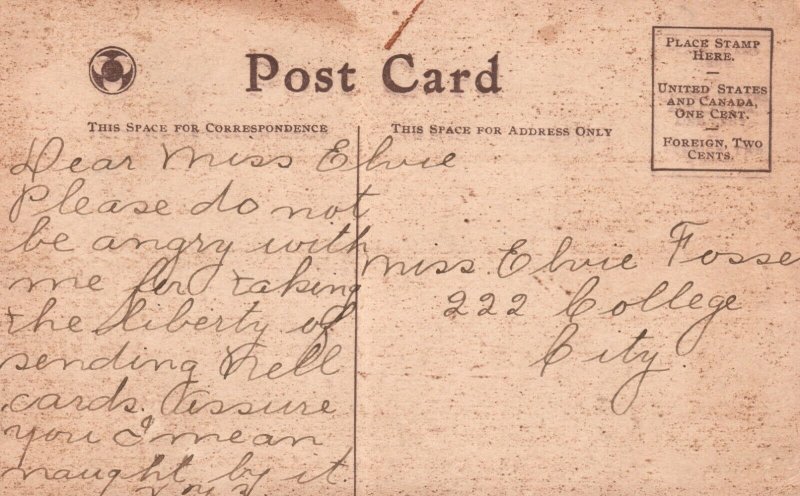 Post Card
PLACE STAMP
HERE.
UNITED STATES
AND CANADA,
ONE CENT.
FOREIGN, TWO
CENTS.
THIS SPACE FOR CORRESPONDENCE
THIS SPACE FOR ADDRESS ONLY
Dear Miss Elvie
Please do not
be angry with
me for taking
the liberty of
sending
cards. Assure
you I mean
naught by it.
Miss. Elvie Fosse
222 College
City.